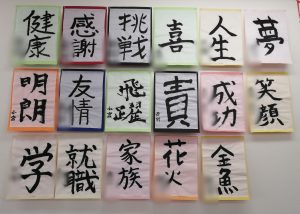 夢
人生
喜
挑戦
感謝
健康
笑顔
成功
責
飛躍
友情
明朗
金魚
花火
家族
就職
学